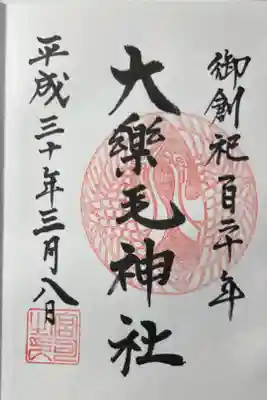 御創祀百二十年
大樂毛神社
平成三十年三月八日
宮司之印